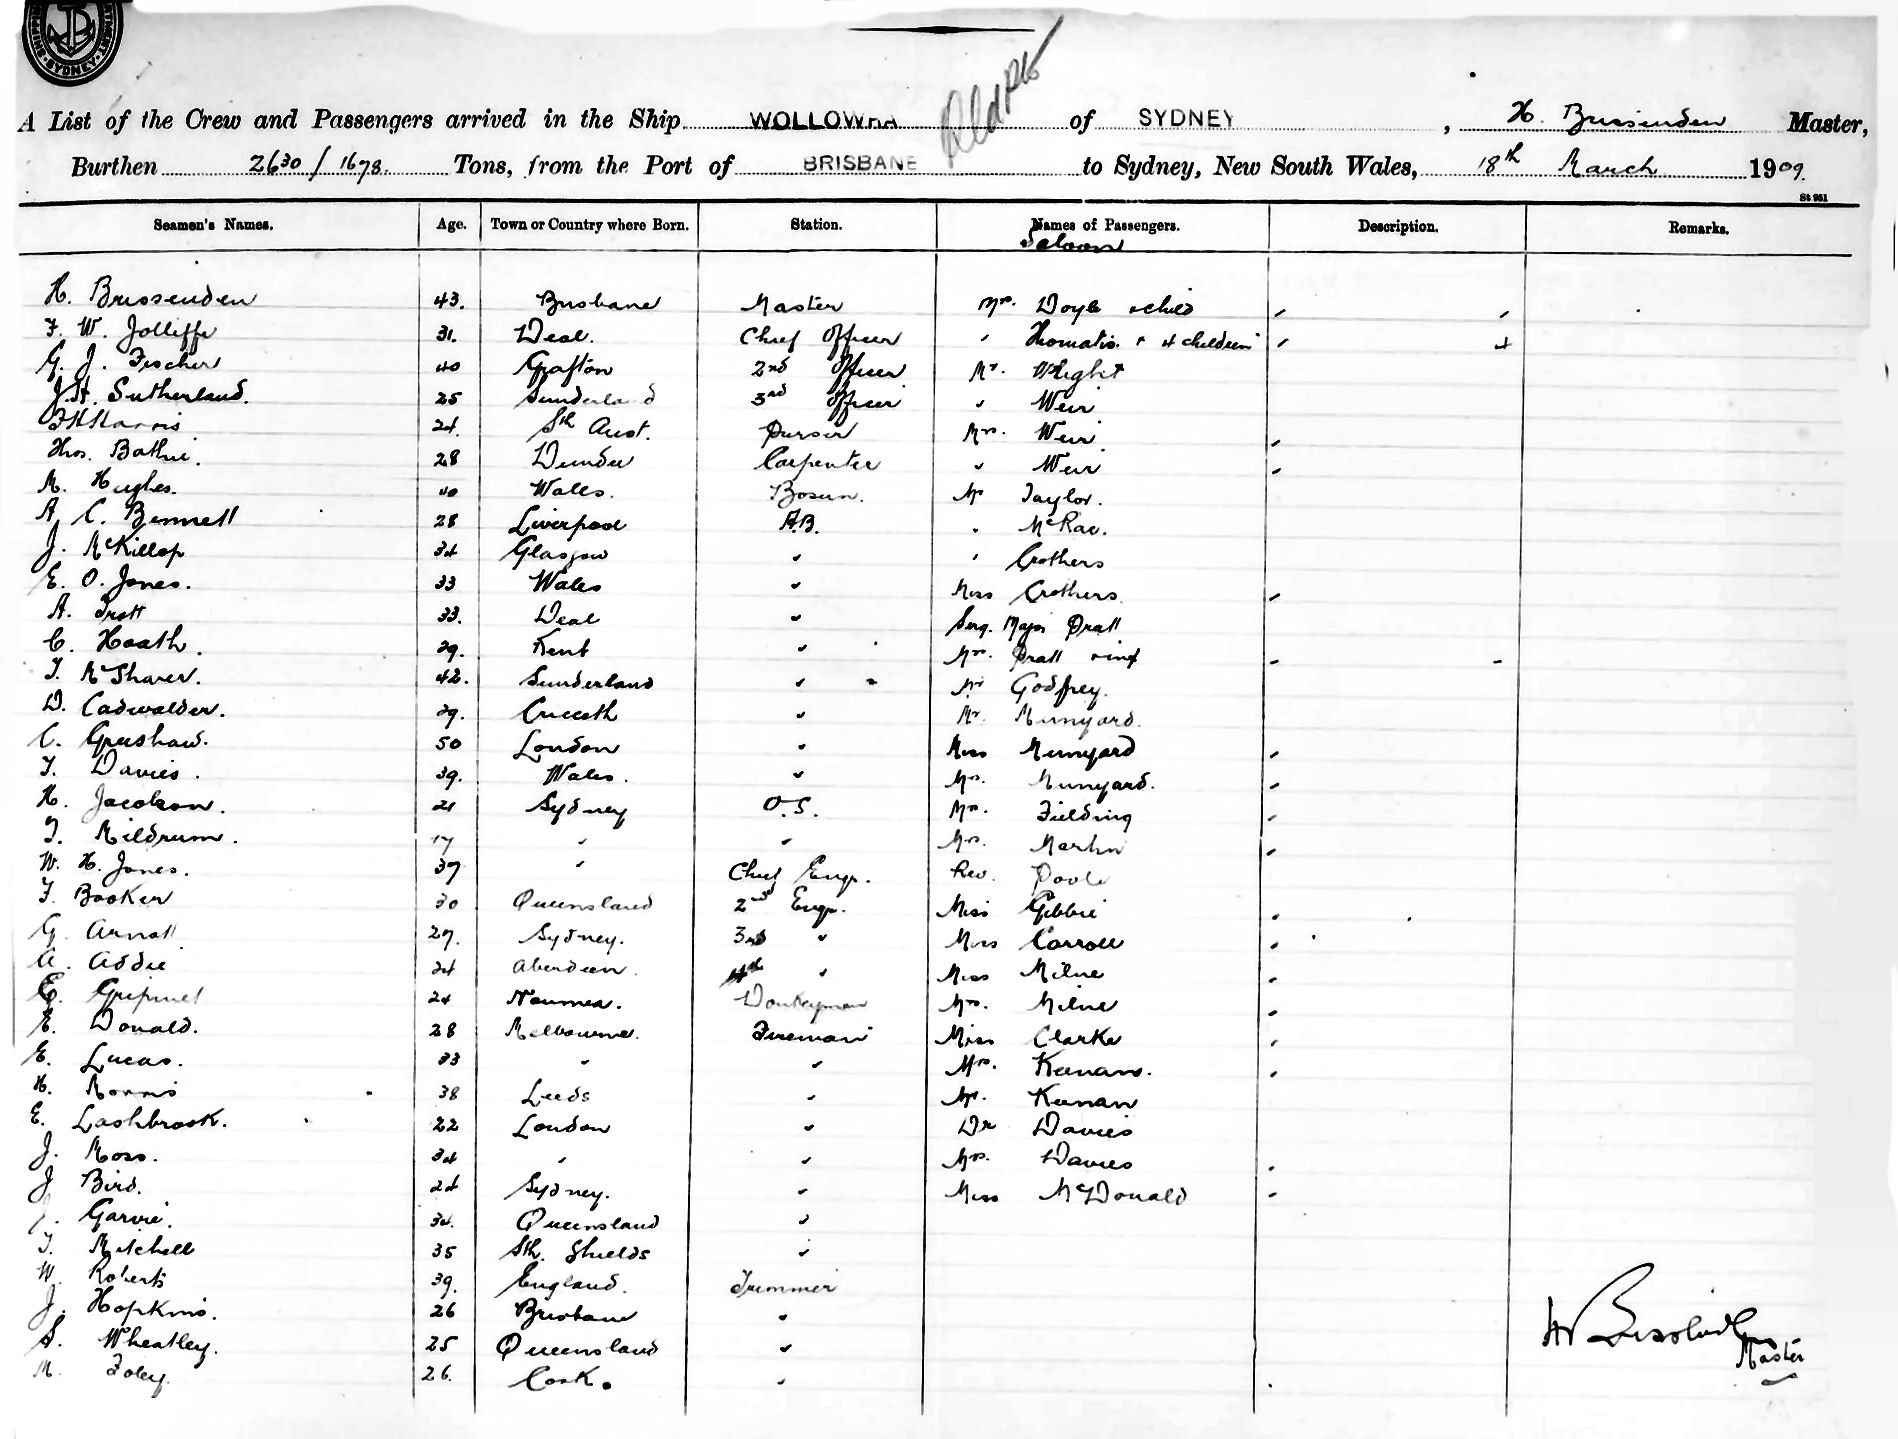 SYDNEY
A List of the Crew and Passengers arrived in the Ship WOLLOWRA of SYDNEY, H. Brissenden Master,
Burthen 2630/1678. Tons, from the Port of BRISBANE to Sydney, New South Wales, 18th March 1909.
St 951
Seamen's Names. Age. Town or Country where Born. Station. Names of Passengers. Description. Remarks.
Saloon
H. Brissenden 43. Brisbane Master Mrs. Doyle & child
F. W. Jolliffe 31. Deal. Chief Officer " & 4 children
G. J. Fischer 40 Grafton 2nd Officer Mr. Wright
J. H. Sutherland. 25 Sunderland 3rd Officer " Weir
F H Harris 24. Sth Aust. Purser Mrs. Weir
Thos. Bathie. 28 Dundee Carpenter " Weir
M. Hughes. 40 Wales. Bosun. Mr Taylor.
A C. Bennett 28 Liverpool A.B. " McRae.
J. McKillop 34 Glasgow " " Crothers
E. O. Jones. 33 Wales " Miss Crothers.
A. Trott 33. Deal " Serg. Major Pratt
C. Hoath. 29. Kent " Mrs. Pratt & inf
T. McSharer. 42. Sunderland " Mr Godfrey.
D. Cadwalder. 29. Criccieth " Mr. Munyard.
C. Greshaw. 50 London " Miss Munyard
T. Davies. 39. Wales. " Mrs. Munyard.
H. Jacobson. 21 Sydney O.S. Mrs. Fielding
T. Mildrum. 17 " " Mrs. Martin
W. H. Jones. 37 " Chief Engr. Rev. Poole
F. Booker 30 Queensland 2nd Engr. Miss Gibbie
G. Arnott 27. Sydney. 3rd " Miss Carroll
A. Addie 24 Aberdeen. 4th " Miss Milne
E. 24 Noumea. Donkeyman Mrs. Milne
E. Donald. 28 Melbourne. Fireman Miss Clarke
E. Lucas. 33 " " Mrs. Keenan.
H. Morris 38 Leeds " Mr. Keenan
E. Lashbrook. 22 London " Dr Davies
J. Moss. 34 " " Mrs. Davies
J Bird. 24 Sydney. " Miss McDonald
J. Garvie. 34. Queensland "
T. Mitchell 35 Sth. Shields "
W. Roberts 39. England. Trimmer
J. Hopkins. 26 Brisbane "
S. Wheatley. 25 Queensland "
M. Foley. 26. Cork. "
H Brissenden
Master